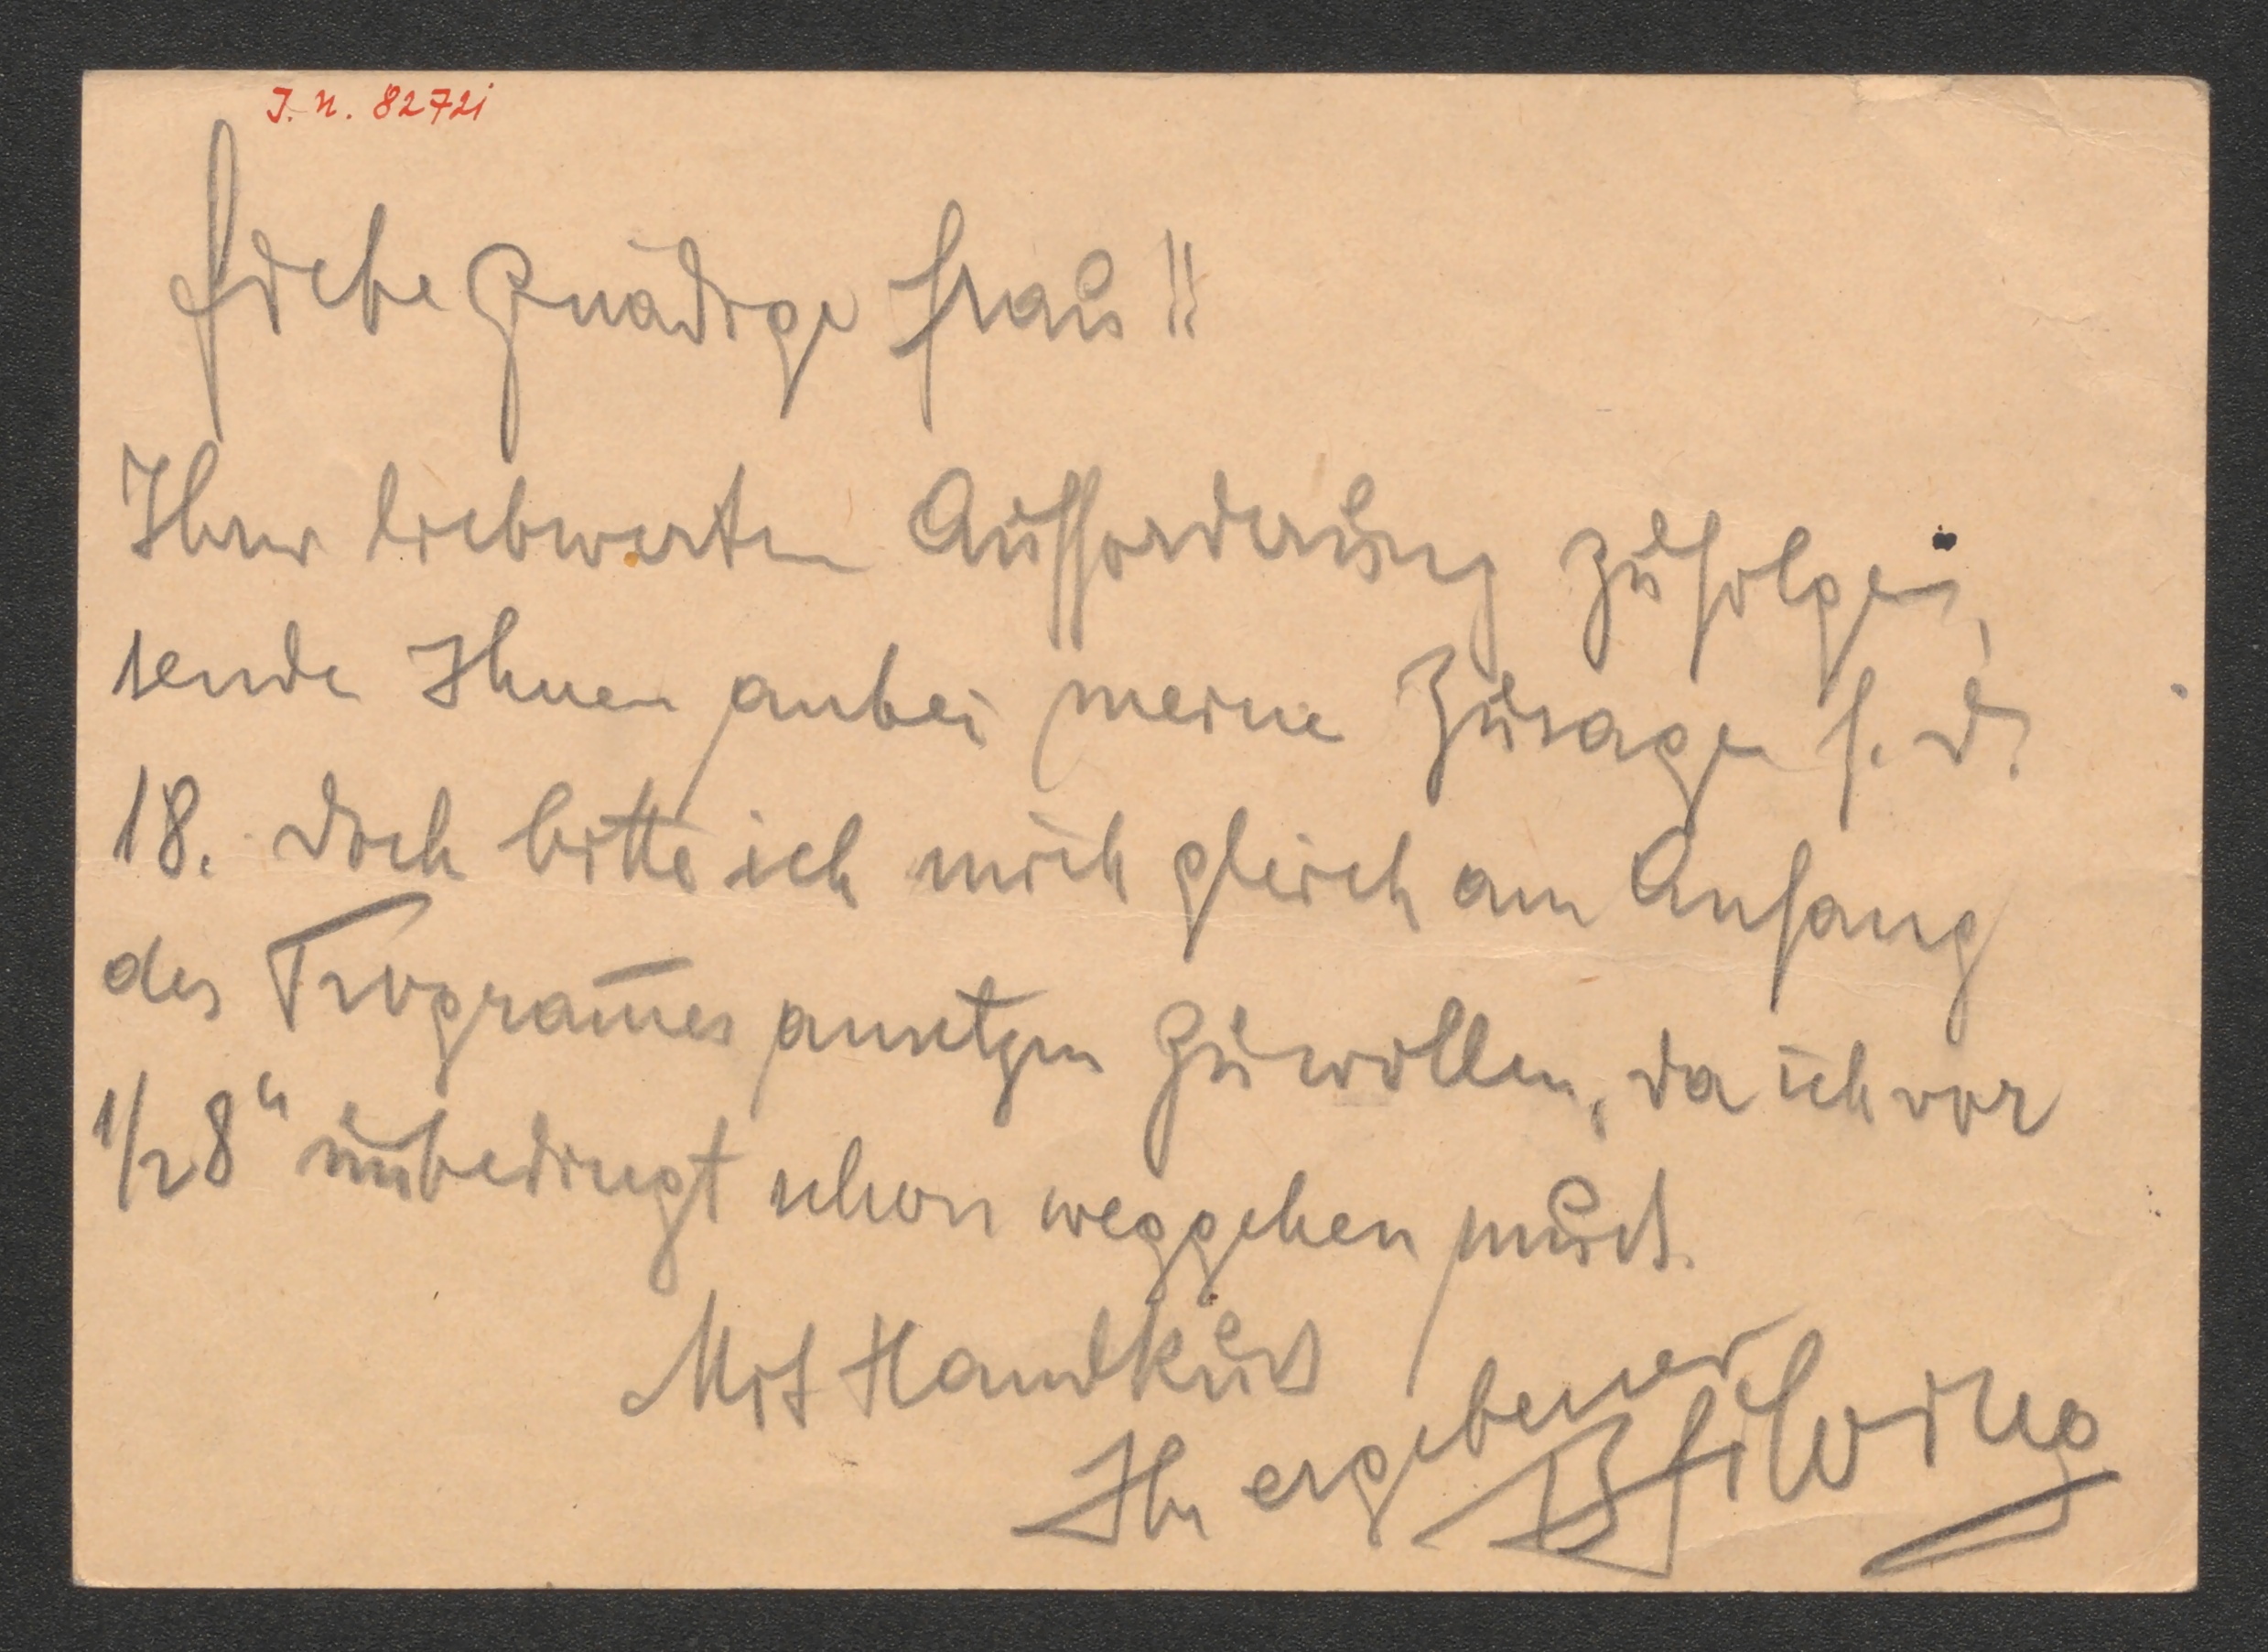 J. N. 82721
Liebe Gnädige Frau!!
Ihrer liebwerten Aufforderung zufolge,
sende Ihnen anbei meine Zusage f. d.
18. Doch bitte ich mich gleich am Anfang
des Programm̄es ansetzen zu wollen, da ich vor
1/2 8h unbedingt schon weggehen muss.
Mit Handkuss
Ihr ergebener